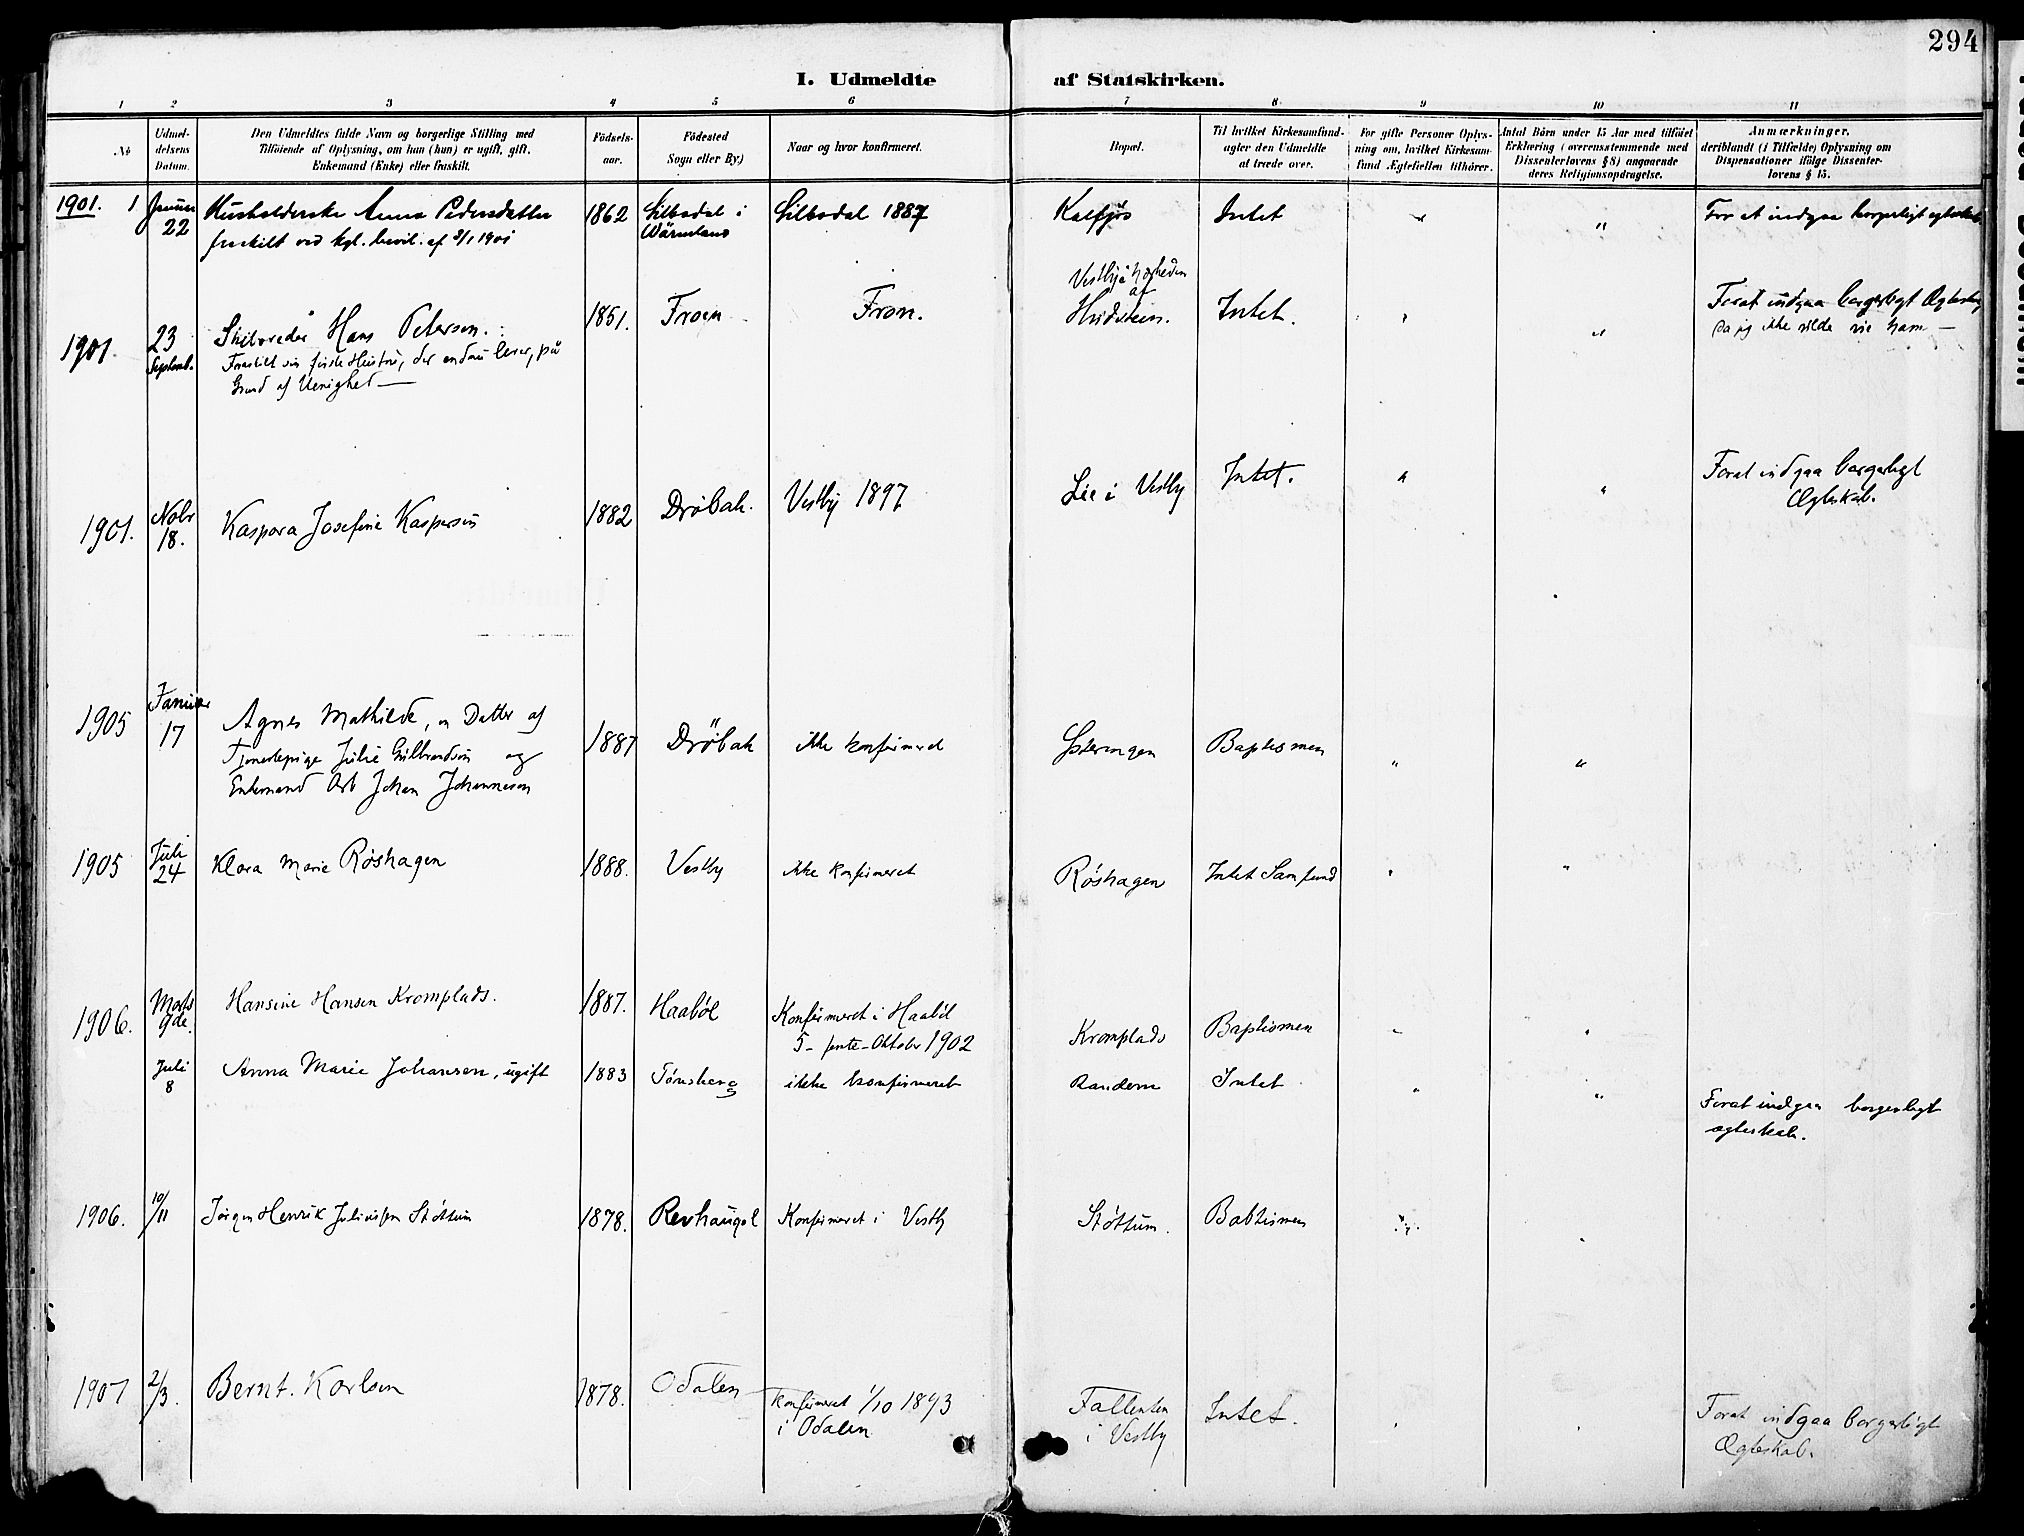 294
I. Udmeldte af Statskirken.
1 2 3 4 5 6 7 8 9 10 11
No
Udmel-
delsens
Datum.
Den Udmeldtes fulde Navn og borgerlige Stilling med
Tilföiende af Oplysning, om han (hun) er ugift, gift,
Enkemand (Enke) eller fraskilt.
Födsels-
aar.
Födested
Sogn eller By.)
Naar og hvor konfirmeret.
Bopæl.
Til hvilket Kirkesamfund
agter den Udmeldte
at træde over.
For gifte Personer Oplys-
ning om, hvilket Kirkesam-
fund Ægtefællen tilhörer.
Antal Börn under 15 Aar med tilföiet
Erklæring (overensstemmende med
Dissenterlovens § 8) angaaende
deres Religionsopdragelse.
Anmærkninger,
deriblandt (i Tilfælde) Oplysning om
Dispensationer ifölge Dissenter-
lovens § 15.
1901. 1
Januar
22
Husholderske Anna Pedersdatter
fraskilt ved kgl. bevil. af 3/1 1901
1862
Silbodal i
Wärmland
Silbodal 1887
Intet
"
For at indgaa borgerligt ægteskab.
1901.
23
Septemb.
Hans Petersen.
Fraskilt sin første Hustru, der endnu lever, på
Grund af Uenighed —
1851.
Froen
Fron.
Vestby i Nærheden
af
Hvidsteen.
Intet.
"
Forat indgaa borgerligt Ægteskab,
da jeg ikke vilde vie ham —
1901.
Nobr
18.
Kaspara Josefine Kaspersen
1882
Dröbak.
Vestby 1897
Lie i Vestby
Intet.
"
"
Forat indgaa borgerligt
Ægteskab.
1905
Januar
17
Agnes Mathilde, en Datter af
Tjenestepige Julie Gulbrandsen og
Enkemand Arb Johan Johannesen
1887
Dröbak
ikke konfirmeret
Baptismen
"
"
1905
Juli
24
Klara Marie Røshagen
1888.
Vestby
ikke konfirmeret
Røshagen
Intet Samfund
"
1906.
Marts
9de.
Hansine Hansen Kromplads.
1887.
Haabøl
Konfirmeret i Haabøl
5 – femte – Oktober 1902
Kromplads
Baptismen
"
Juli
8
Anna Marie Johansen, ugift
1883
Tønsberg
ikke konfirmeret
Randem
Intet
"
"
Forat indgaa borgerligt
ægteskab.
1906.
10/11
Jørgen Henrik Juliussen Støttum
1878.
Revhaugol
Konfirmeret i Vestby
Støttum.
Babtismen
"
1907
2/3
Bernt Karlsen
1878.
Odalen
Konfirmeret 1/10 1893
i Odalen
Fallenten
i Vestby
Intet.
Forat indgaa borgerligt
Ægteskab.